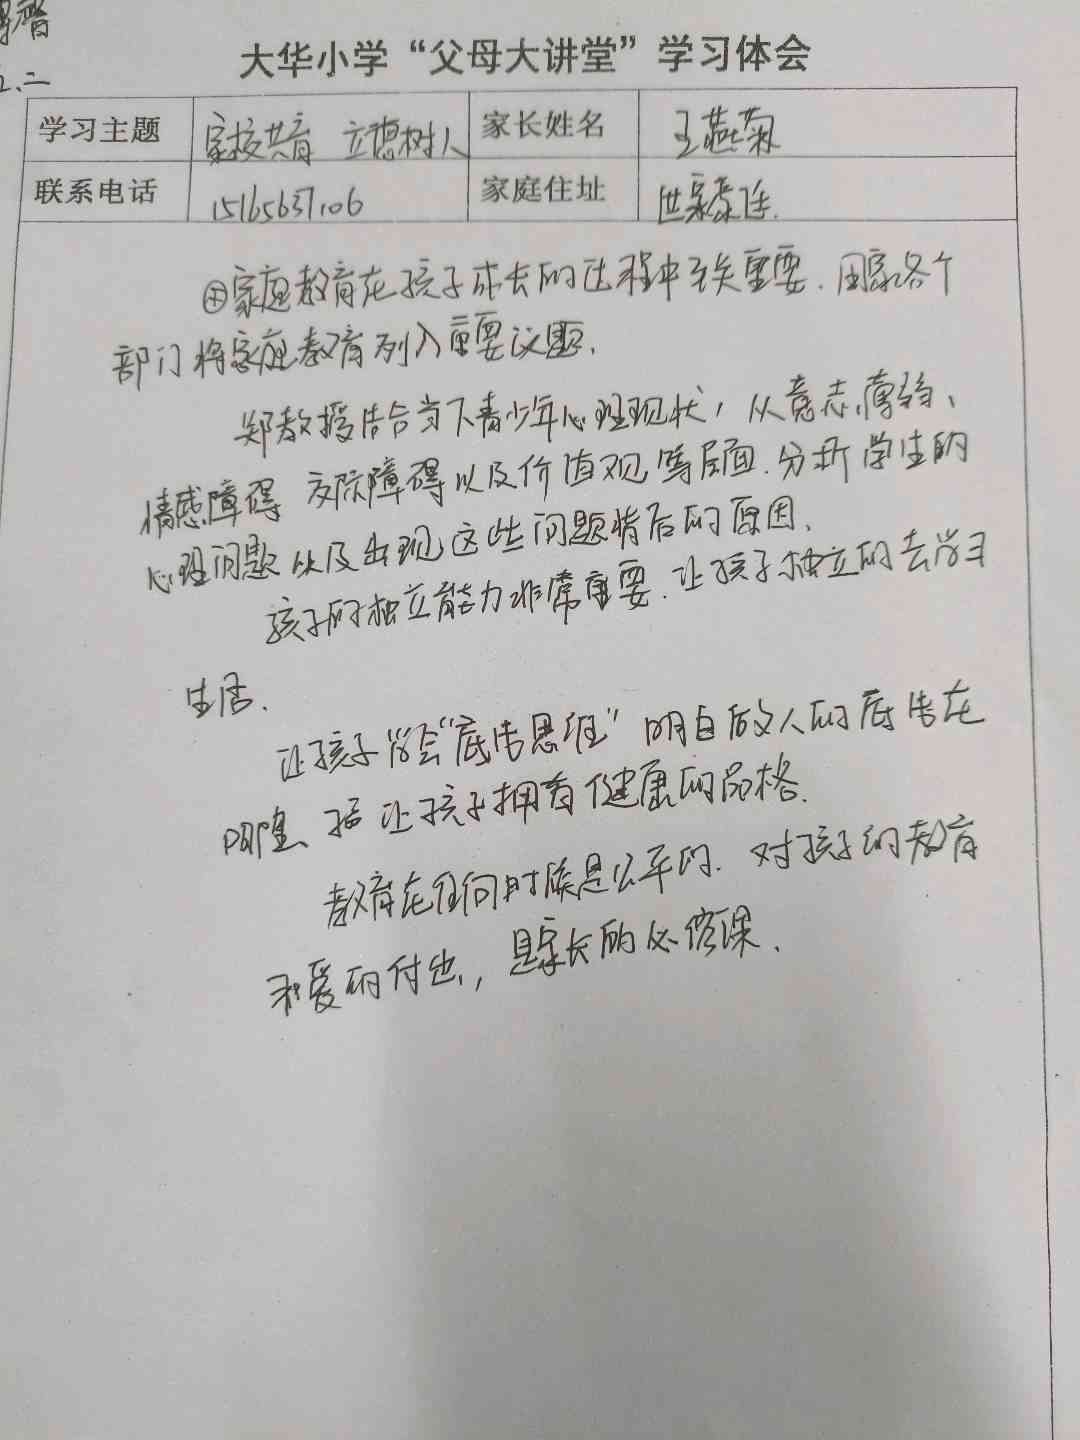 五.二
大华小学“父母大讲堂”学习体会
学习主题 家校共育 立德树人 家长姓名 王燕菊
联系电话 15165637106 家庭住址
家庭教育在孩子成长的过程中至关重要.国家各个
部门将家庭教育列入重要议题.
郑教授结合当下青少年心理现状,从意志薄弱、
情感障碍 交际障碍以及价值观等层面.分析学生的
心理问题以及出现这些问题背后的原因.
孩子的独立能力非常重要.让孩子独立的去学习
生活.
让孩子学会“底线思维”明白做人的底线在
哪里、让孩子拥有健康的品格.
教育在任何时候是公平的.对孩子的教育
和爱的付出,是家长的必修课.